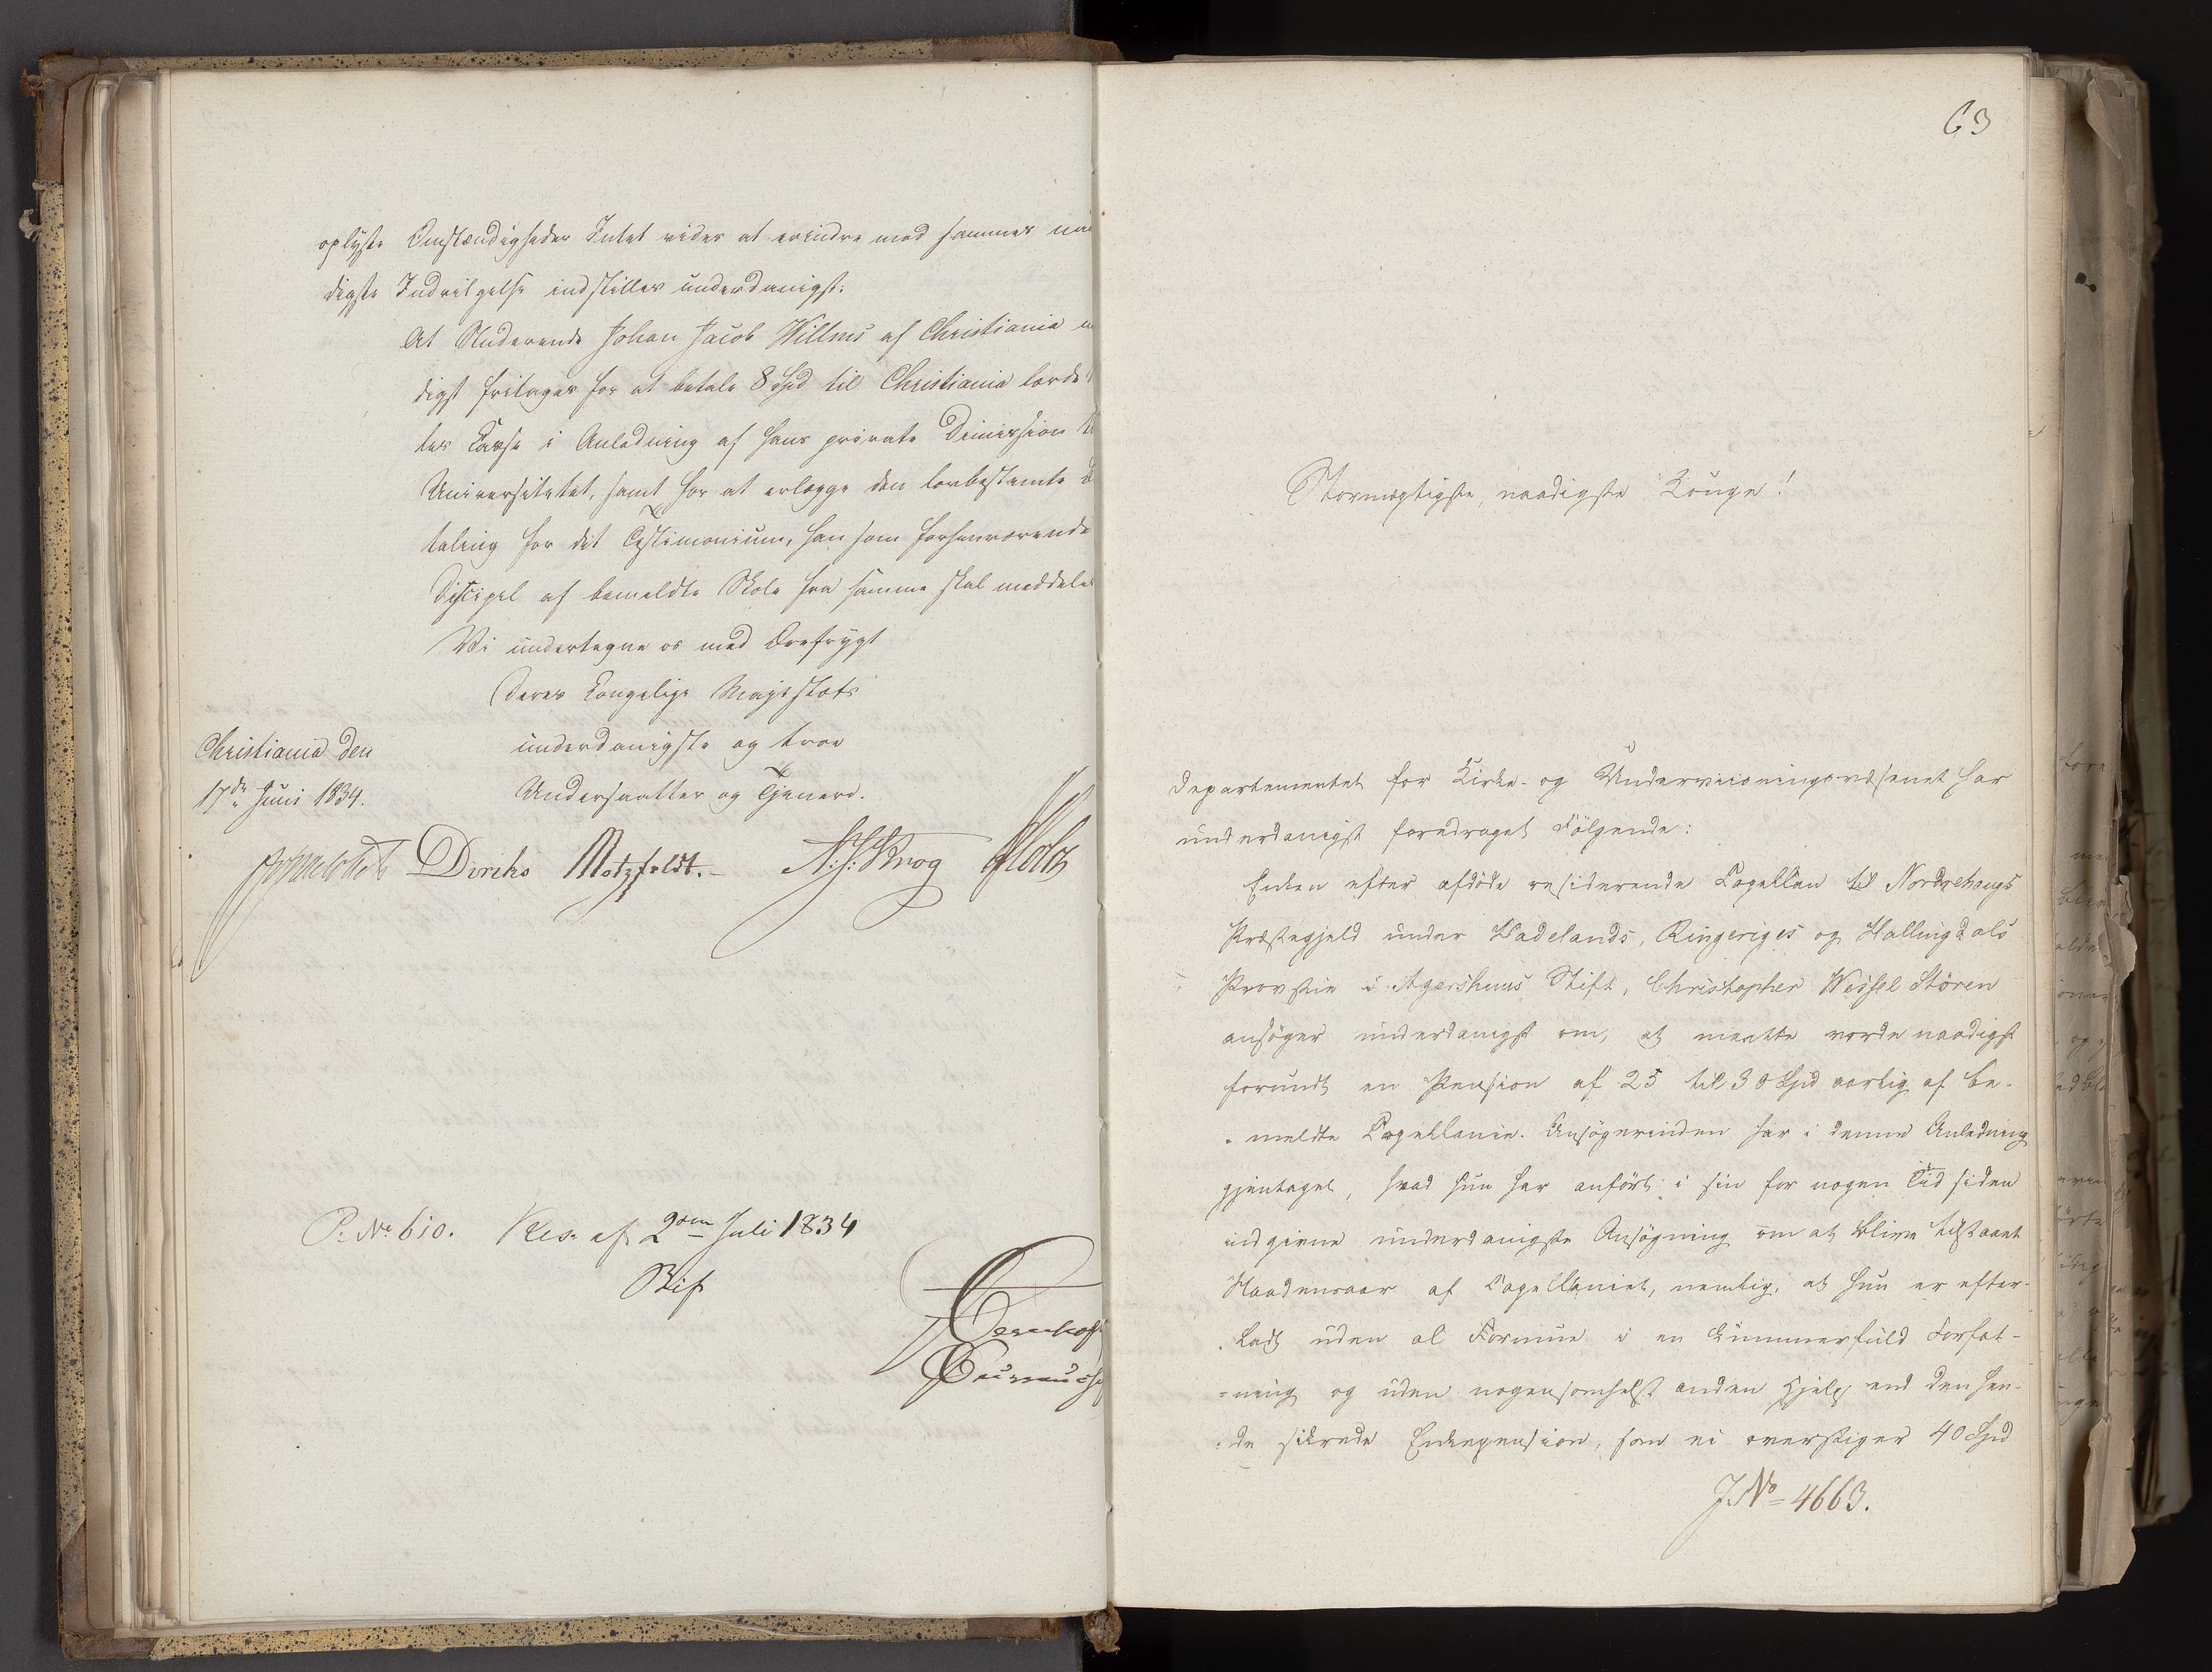 oplyste Omstændigheder Intet vides at erindre mod sammes naa
digste Indvilgelse indstilles underdanigst:
At Studerende Johan Jacob Willms af Christiania
digst fritages for at betale 8 Spd til Christiania lærde
les Casse i Anledning af hans private Dimission
Universitetet, samt for at erlægge den lovbestemte
taling for det Testimonium, han som forhenværende
Discipel af bemeldte Skole fra samme skal meddeles
Vi undertegne os med Ærefrygt
Deres Kongelige Majestæts
underdanigste og troe
Undersaatter og Tjenere.
Christiania den
17de Juni 1834.
Diriks Motzfeldt. N: J: Krog Holst
P. No 610. Res. af 2den Juli 1834
Bif
63
Stormægtigste, naadigste Konge!
Departementet for Kirke- og Underviisningsvæsenet har
underdanigst foredraget Følgende:
Enken efter afdöde residerende Capellan til Nordrehougs
Præstegjeld under Hadelands, Ringeriges og Hallingdals
Provstie i Agershuus Stift, Christopher Wessel Stören
ansöger underdanigst om, at maatte vorde naadigst
forundt en Pension af 25 til 30 Spd aarlig af be-
meldte Capellanie. Ansögerinden har i denne Anledning
gjentaget, hvad hun har anfört i sin for nogen Tid siden
indgivne underdanigste Ansögning om at blive tilstaaet
Naadensaar af Capellaniet, nemlig, at hun er efter-
ladt uden al Formue i en kummerfuld Forfat-
=ning og uden nogensomhelst anden Hjelp end den hen-
de sikrede Enkepension, som ei overstiger 40 Spd
J. No = 4663.